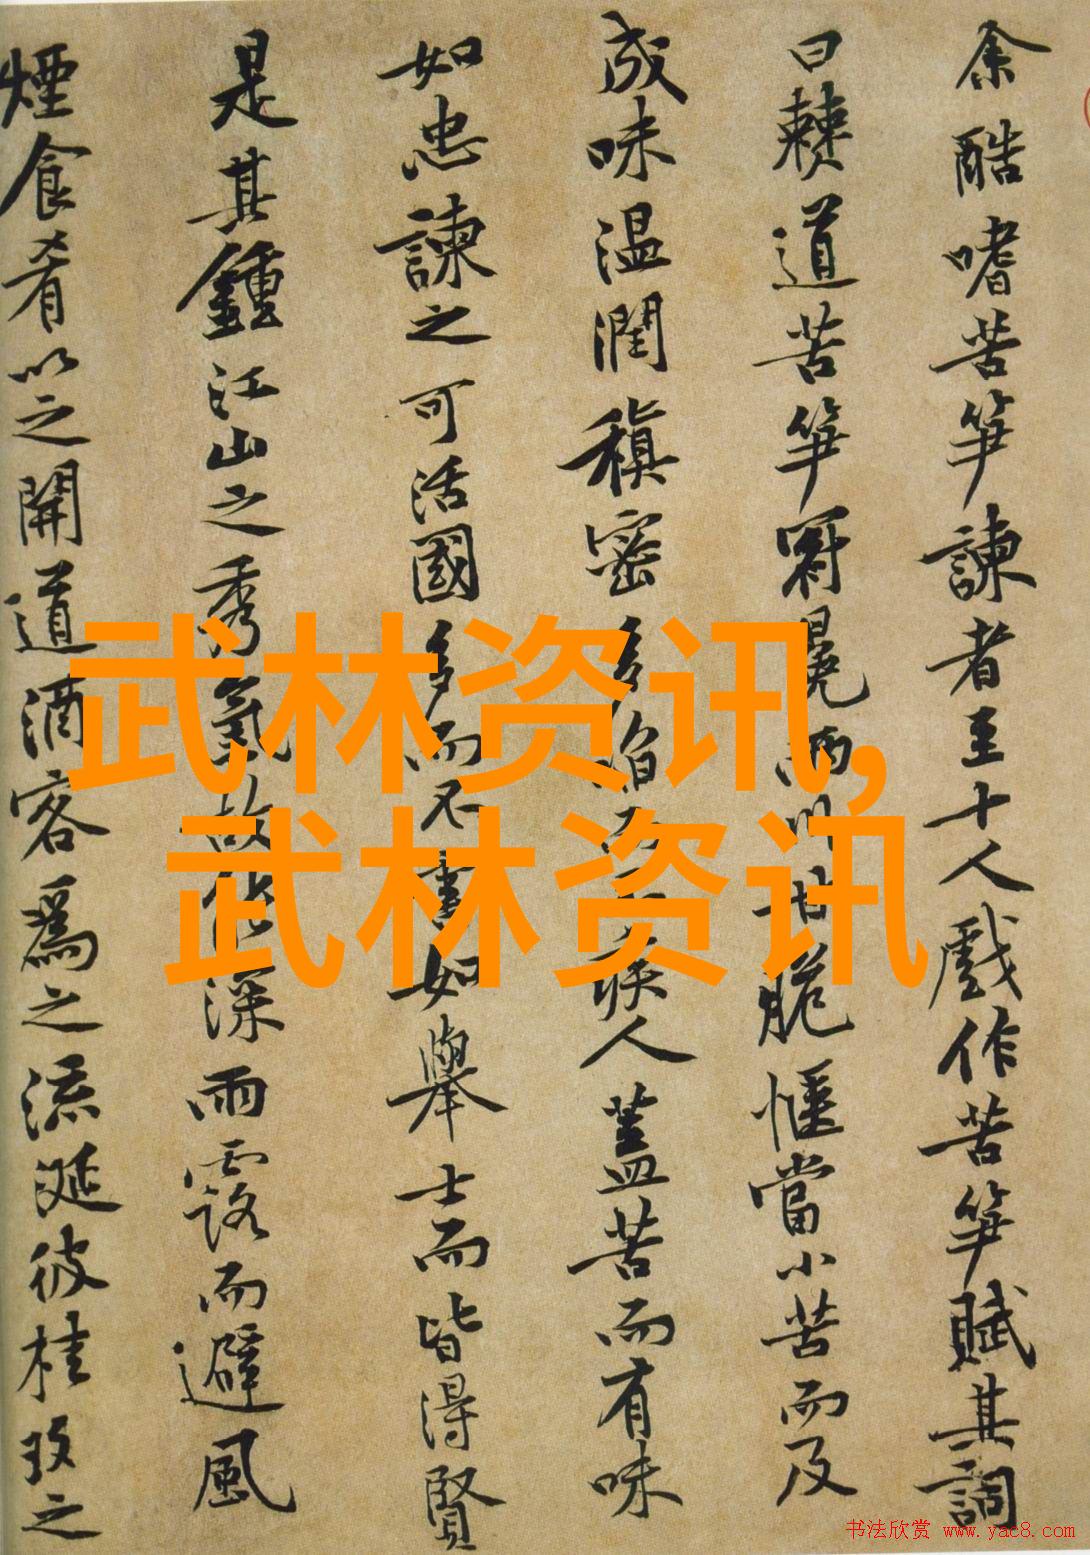 余酷嗜苦笋諫者至十人戲作苦笋賦其詞
曰僰道苦笋冠冕兩川甘脆愜當小苦而及
成味温潤稹密多啗疾人蓋苦而有味
如忠諫之可活國多而不害如舉士而皆得賢
是其鍾江山之秀氣故深雨露而避風
煙食肴以之開道酒客為之流涎彼桂玫之
武林资讯,
武林资讯
书法欣赏 www.yac8.com